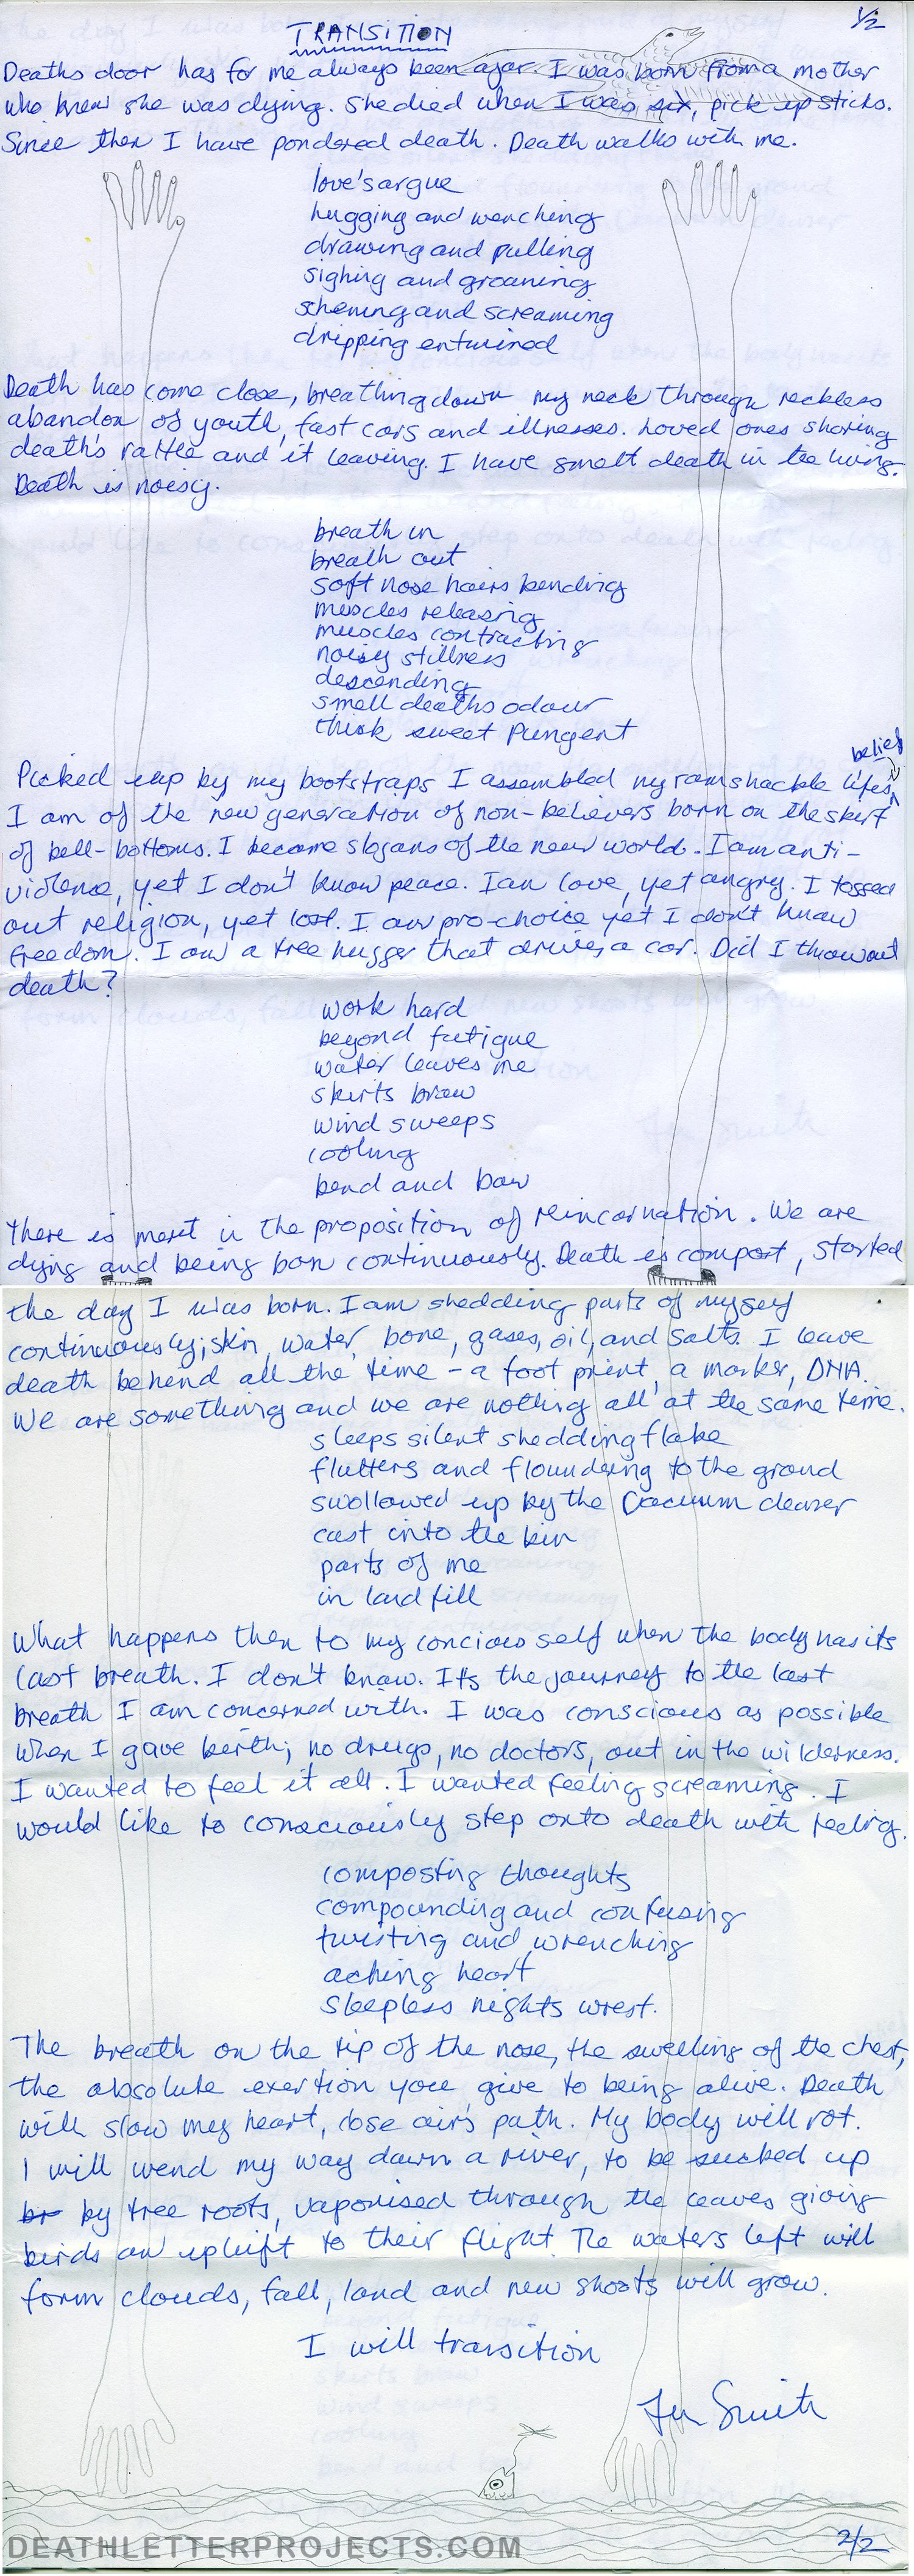 1/2
TRANSITION
Deaths door has for me always been ajar. I was born from a mother
who knew she was dying. She died when I was six, pick up sticks.
Since then I have pondered death. Death walks with me.
love's argue
hugging and wenching
drawing and pulling
sighing and groaning
scheming and screaming
dripping entwined
Death has come close, breathing down my neck through reckless
abandon of youth, fast cars and illnesses. Loved ones sharing
death's rattle and it leaving. I have smelt death in the living.
Death is noisy.
breath in
breath out
soft nose hairs bending
muscles releasing
muscles contracting
noisy stillness
descending
smell deaths odour
thick sweet Pungent
belief
Picked up by my bootstraps I assembled my ramshackle lifes
I am of the new generation of non-believers born on the skirt
of bell-bottoms. I became slogans of the new world. I am anti-
violence, yet I don't know peace. I am love, yet angry. I tossed
out religion, yet lost. I am pro-choice yet I don't know
freedom. I am a tree hugger that drives a car. Did I throw out
death?
work hard
beyond fatigue
water leaves me
skirts brow
wind sweeps
cooling
bend and bow
There is merit in the proposition of reincarnation. We are
dying and being born continuously. Death is compost, started
the day I was born. I am shedding parts of myself
continuously; skin, water, bone, gases, oil, and salts. I leave
death behind all the time - a foot print, a marker, DNA.
We are something and we are nothing all at the same time.
sleeps silent shedding flake
flutters and floundering to the ground
swollowed up by the Vacuum cleaner
cast into the bin
parts of me
in land fill
What happens then to my concious self when the body has its
last breath. I don't know. It's the journey to the last
breath I am concerned with. I was conscious as possible
when I gave birth; no drugs, no doctors, out in the wilderness.
I wanted to feel it all. I wanted feeling screaming. I
would like to consciously step onto death with feeling.
composting thoughts
compounding and confusing
twisting and wrenching
aching heart
sleepless nights wrest.
The breath on the tip of the nose, the swelling of the chest,
the absolute exertion you give to being alive. Death
will slow my heart, close air's path. My body will rot.
I will wend my way down a river, to be sucked up
by tree roots, vaporised through the leaves giving
birds an uplift to their flight. The waters left will
form clouds, fall, land and new shoots will grow.
I will transition
Smith
DEATHLETTERPROJECTS.COM
2/2